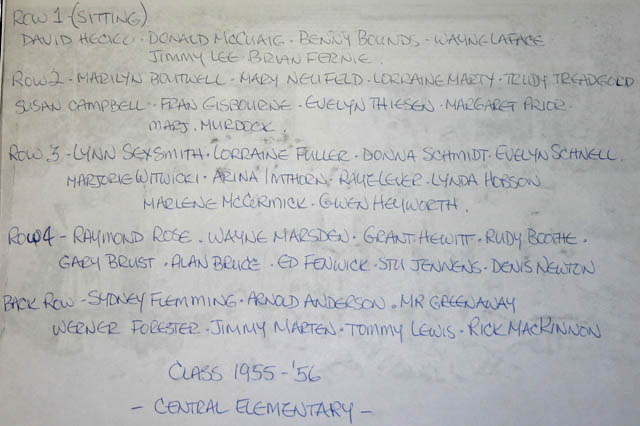 ROW 1-(SITTING)
DAVID HECKEL · DONALD McCUAIG · BENNY BOUNDS - WAYNE LAFACE
JIMMY LEE · BRIAN FERNIE.
ROW 2 - MARILYN BOUTWELL · MARY NEUFELD · LORRAINE MARTY · TRUDY TREADGOLD
SUSAN CAMPBELL · FRAN GISBOURNE · EVELYN THIESEN · MARGARET PRIOR ·
MARJ. MURDOCK.
ROW 3 - LYNN SEXSMITH · LORRAINE FULLER · DONNA SCHMIDT · EVELYN SCHNELL
MARJORIE WITWICKI · ARINA IMTHORN · RAYE LEVER · LYNDA HOBSON
MARLENE McCORMICK · GWEN HEYWORTH.
ROW 4 - RAYMOND ROSE. WAYNE MARSDEN · GRANT HEWITT · RUDY BOOTHE ·
GARY BRUST · ALAN BRUCE · ED FENWICK · STU JENNENS · DENIS NEWTON
BACK ROW - SYDNEY FLEMMING · ARNOLD ANDERSON · MR GREENAWAY
WERNER FORESTER · JIMMY MARTEN · TOMMY LEWIS · RICK MACKINNON
CLASS 1955-'56
- CENTRAL ELEMENTARY -